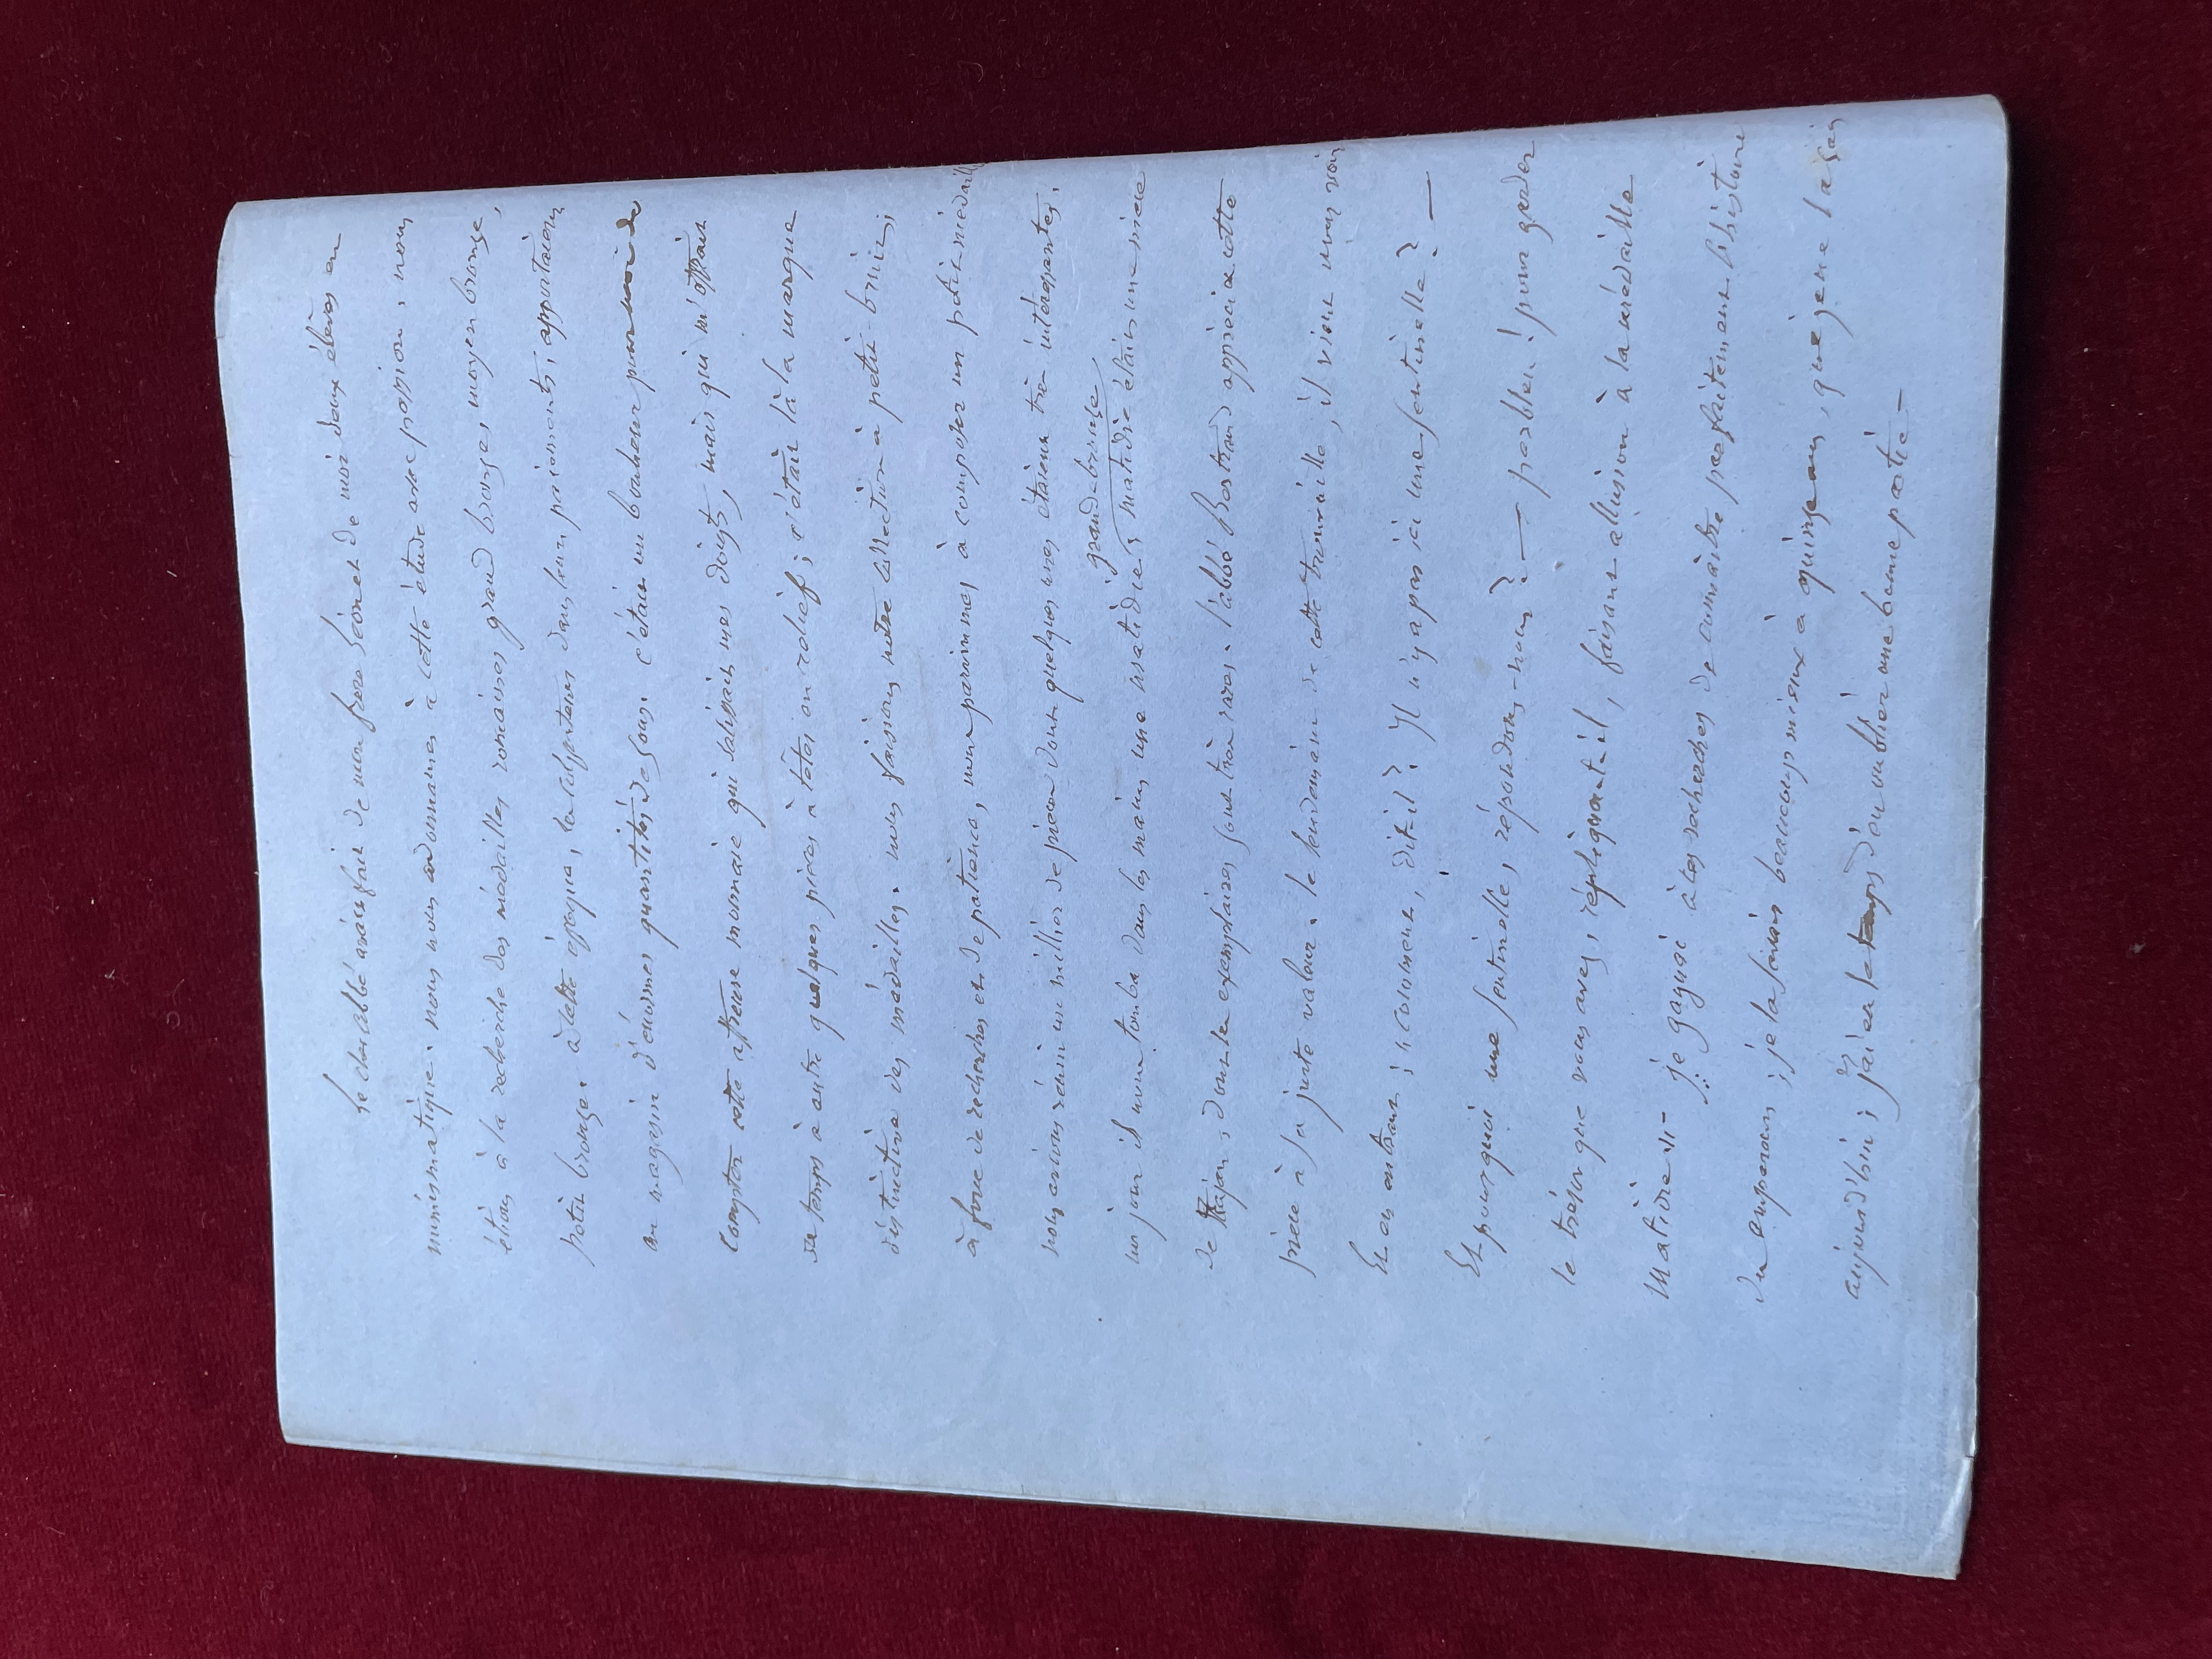 le cher abbé avait fait de mon frère Léon et de moi deux élèves en
numismatique. nous nous adonnames à cette étude avec passion, nous
étions à la recherche des médailles romaines grand bronze, moyen bronze,
petit bronze. à cette époque, les colporteurs dans leurs paiements, apportaient
au magasin d'énormes quantités de sous. c'était un bonheur pour moi de
compter cette affreuse monnaie qui salissait mes doigts, mais qui m'offrait
de temps à autre quelques pièces à têtes en relief ; c'était là la marque
distinctive des médailles. nous faisions notre collection à petit bruit ;
à force de recherches et de patience, nous parvinmes à composer un petit médail
nous avions réuni un millier de pièces dont quelques unes étaient très intéressantes.
grand-bronze
un jour il nous tomba dans les mains une matidie ; matidie était une nièce
de Trajan ; dont les exemplaires sont très rares. l'abbé Bertrand apprécia cette
pièce à sa juste valeur. le lendemain de cette trouvaille, il vient nous voir
Et en entrant ; « comment, dit-il ? Il n'y a pas ici une sentinelle ? —
Et pourquoi une sentinelle, répondons-nous ? — parbleu ! pour garder
le trésor que vous avez, répliqua-t-il, faisant allusion à la médaille
Matidie » — je gagnai à ces recherches de connaître parfaitement l'histoire
des empereurs ; je la savais beaucoup mieux à quinze ans, que je ne la sais
aujourd'hui ; j'ai eu le temps d'en oublier une bonne partie —